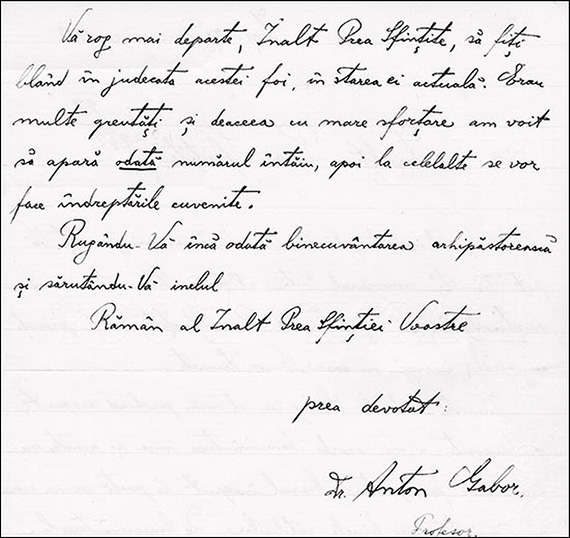 Vă rog mai departe, Inalt Prea Sfințite, să fiți
blând în judecata acestei foi, în starea ei actuală. Erau
multe greutăți și deaceea cu mare sforțare am voit
să apară odată numărul întâiu, apoi la celelalte se vor
face îndreptările cuvenite.
Rugându-Vă încă odată binecuvântarea arhipăstorească
și sărutându-Vă inelul
Rămân al Inalt Prea Sfinției Voastre
prea devotat:
Dr. Anton Gabor.
Profesor.